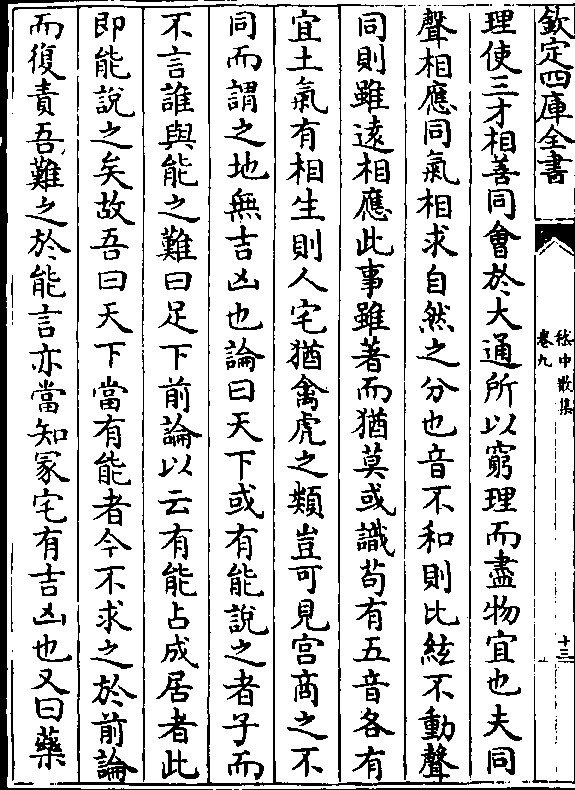 欽定四庫全書
嵇中散集
卷九
十三
理使三才相善同會於大通所以窮理而盡物宜也夫同
聲相應同氣相求自然之分也音不和則比絃不動聲
同則雖逺相應此事雖著而猶莫或識茍有五音各有
宜土氣有相生則人宅猶禽虎之類豈可見宫商之不
同而謂之地無吉凶也論曰天下或有能說之者子而
不言誰與能之難曰足下前論以云有能占成居者此
即能說之矣故吾曰天下當有能者今不求之於前論
而復責吾難之於能言亦當知冢宅有吉凶也又曰藥